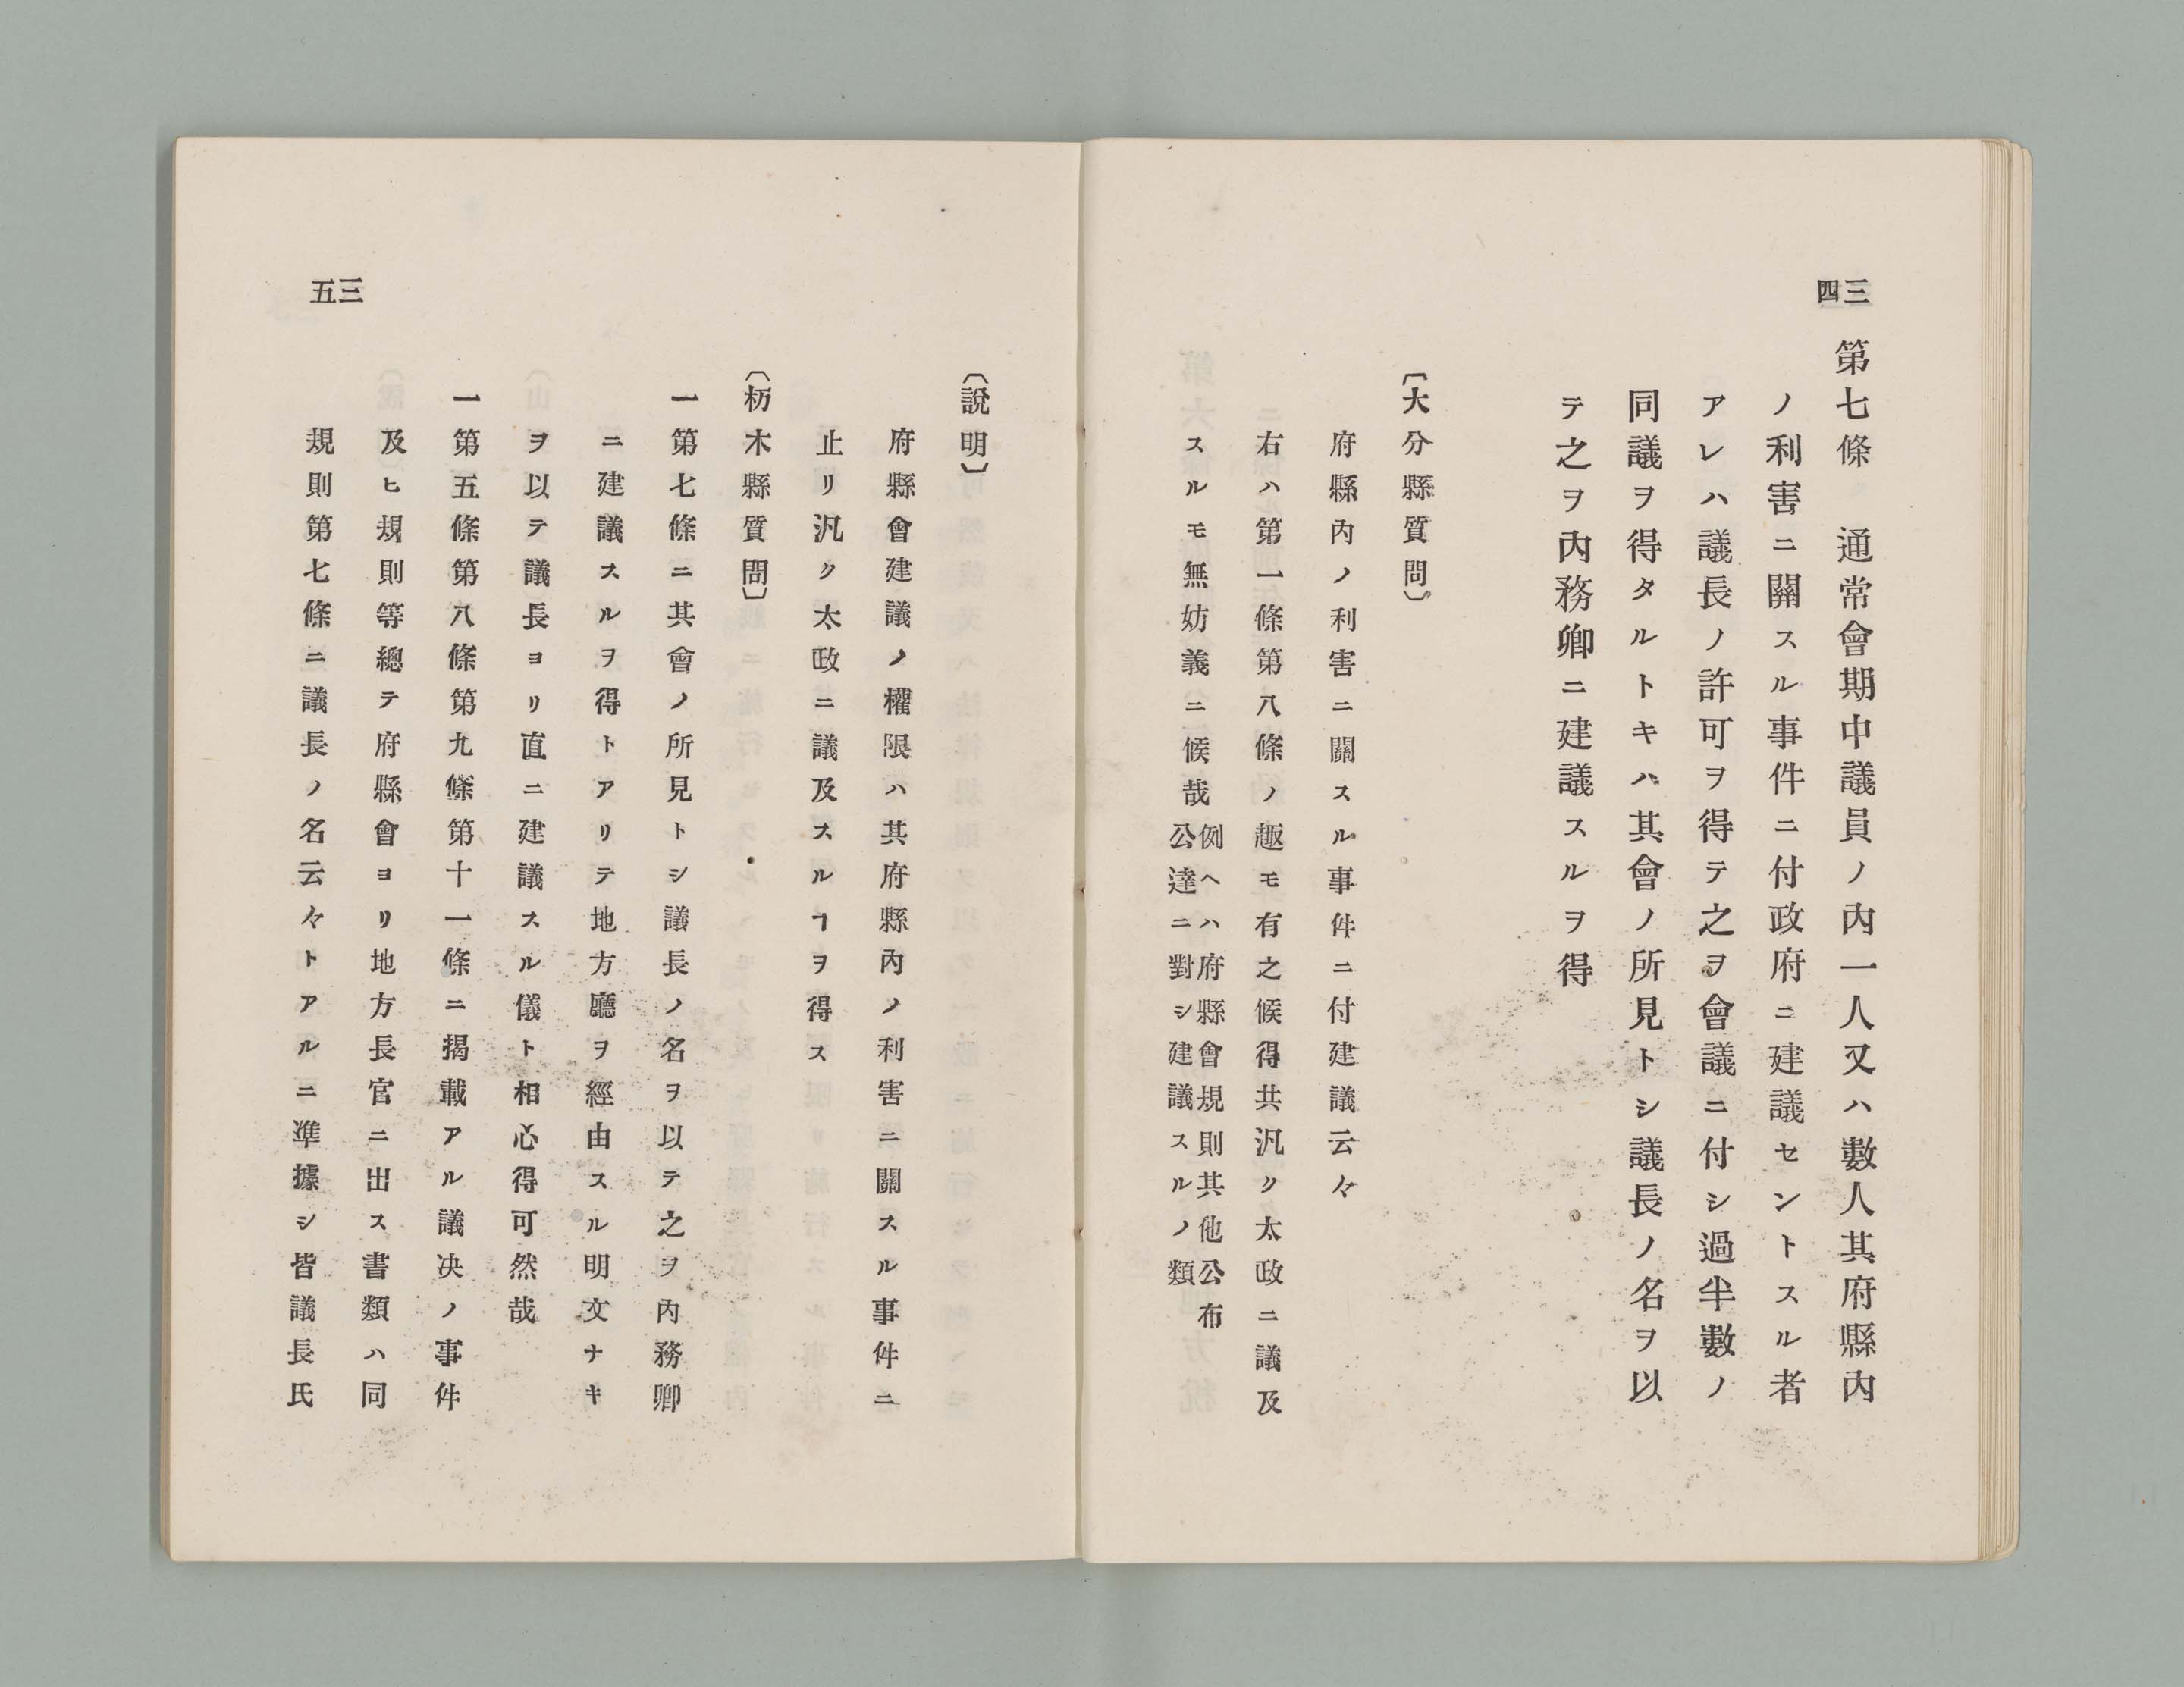 三四
第七條　通常會期中議員ノ內一人又ハ數人其府縣內
ノ利害ニ關スル事件ニ付政府ニ建議セントスル者
アレハ議長ノ許可ヲ得テ之ヲ會議ニ付シ過半數ノ
同議ヲ得タルトキハ其會ノ所見トシ議長ノ名ヲ以
テ之ヲ內務卿ニ建議スルヲ得
〔大分縣質問〕
府縣內ノ利害ニ關スル事件ニ付建議云々
右ハ第一條第八條ノ趣モ有之候得共汎ク太政ニ議及
スルモ無妨義ニ候哉
例ヘハ府縣會規則其他公布
公達ニ對シ建議スルノ類
〔說明〕
府縣會建議ノ權限ハ其府縣內ノ利害ニ關スル事件ニ
止リ汎ク太政ニ議及スルヿヲ得ス
〔栃木縣質問〕
一第七條ニ其會ノ所見トシ議長ノ名ヲ以テ之ヲ內務卿
ニ建議スルヲ得トアリテ地方廳ヲ經由スル明文ナキ
ヲ以テ議長ヨリ直ニ建議スル儀ト相心得可然哉
一第五條第八條第九條第十一條ニ揭載アル議決ノ事件
及ヒ規則等總テ府縣會ヨリ地方長官ニ出ス書類ハ同
規則第七條ニ議長ノ名云々トアルニ準據シ皆議長氏
三五